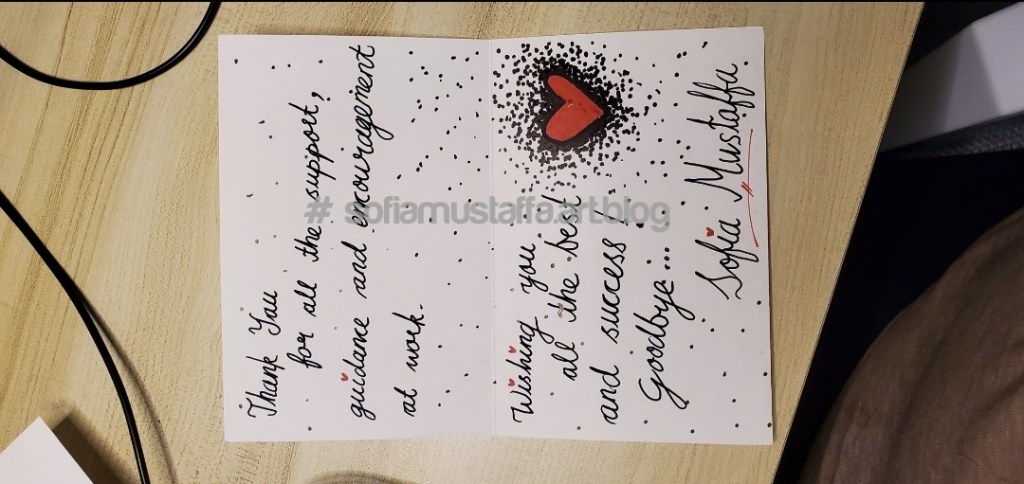 Thank You
for all the support,
guidance and encouragement
at work.
Wishing you
all the best
and success!
Goodbye...
Sofia Mustaffa
# sofiamustaffa.art.blog